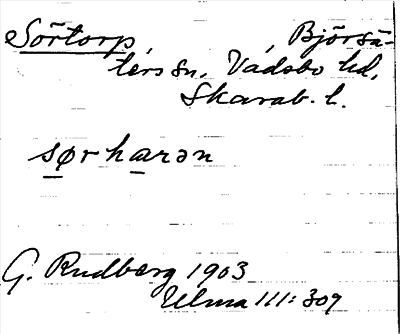 Sörtorp Björsä-
ters sn. Vadsbo hd,
Skarab. l.
sørharən
G. Rudberg 1903
Ulma 111:309